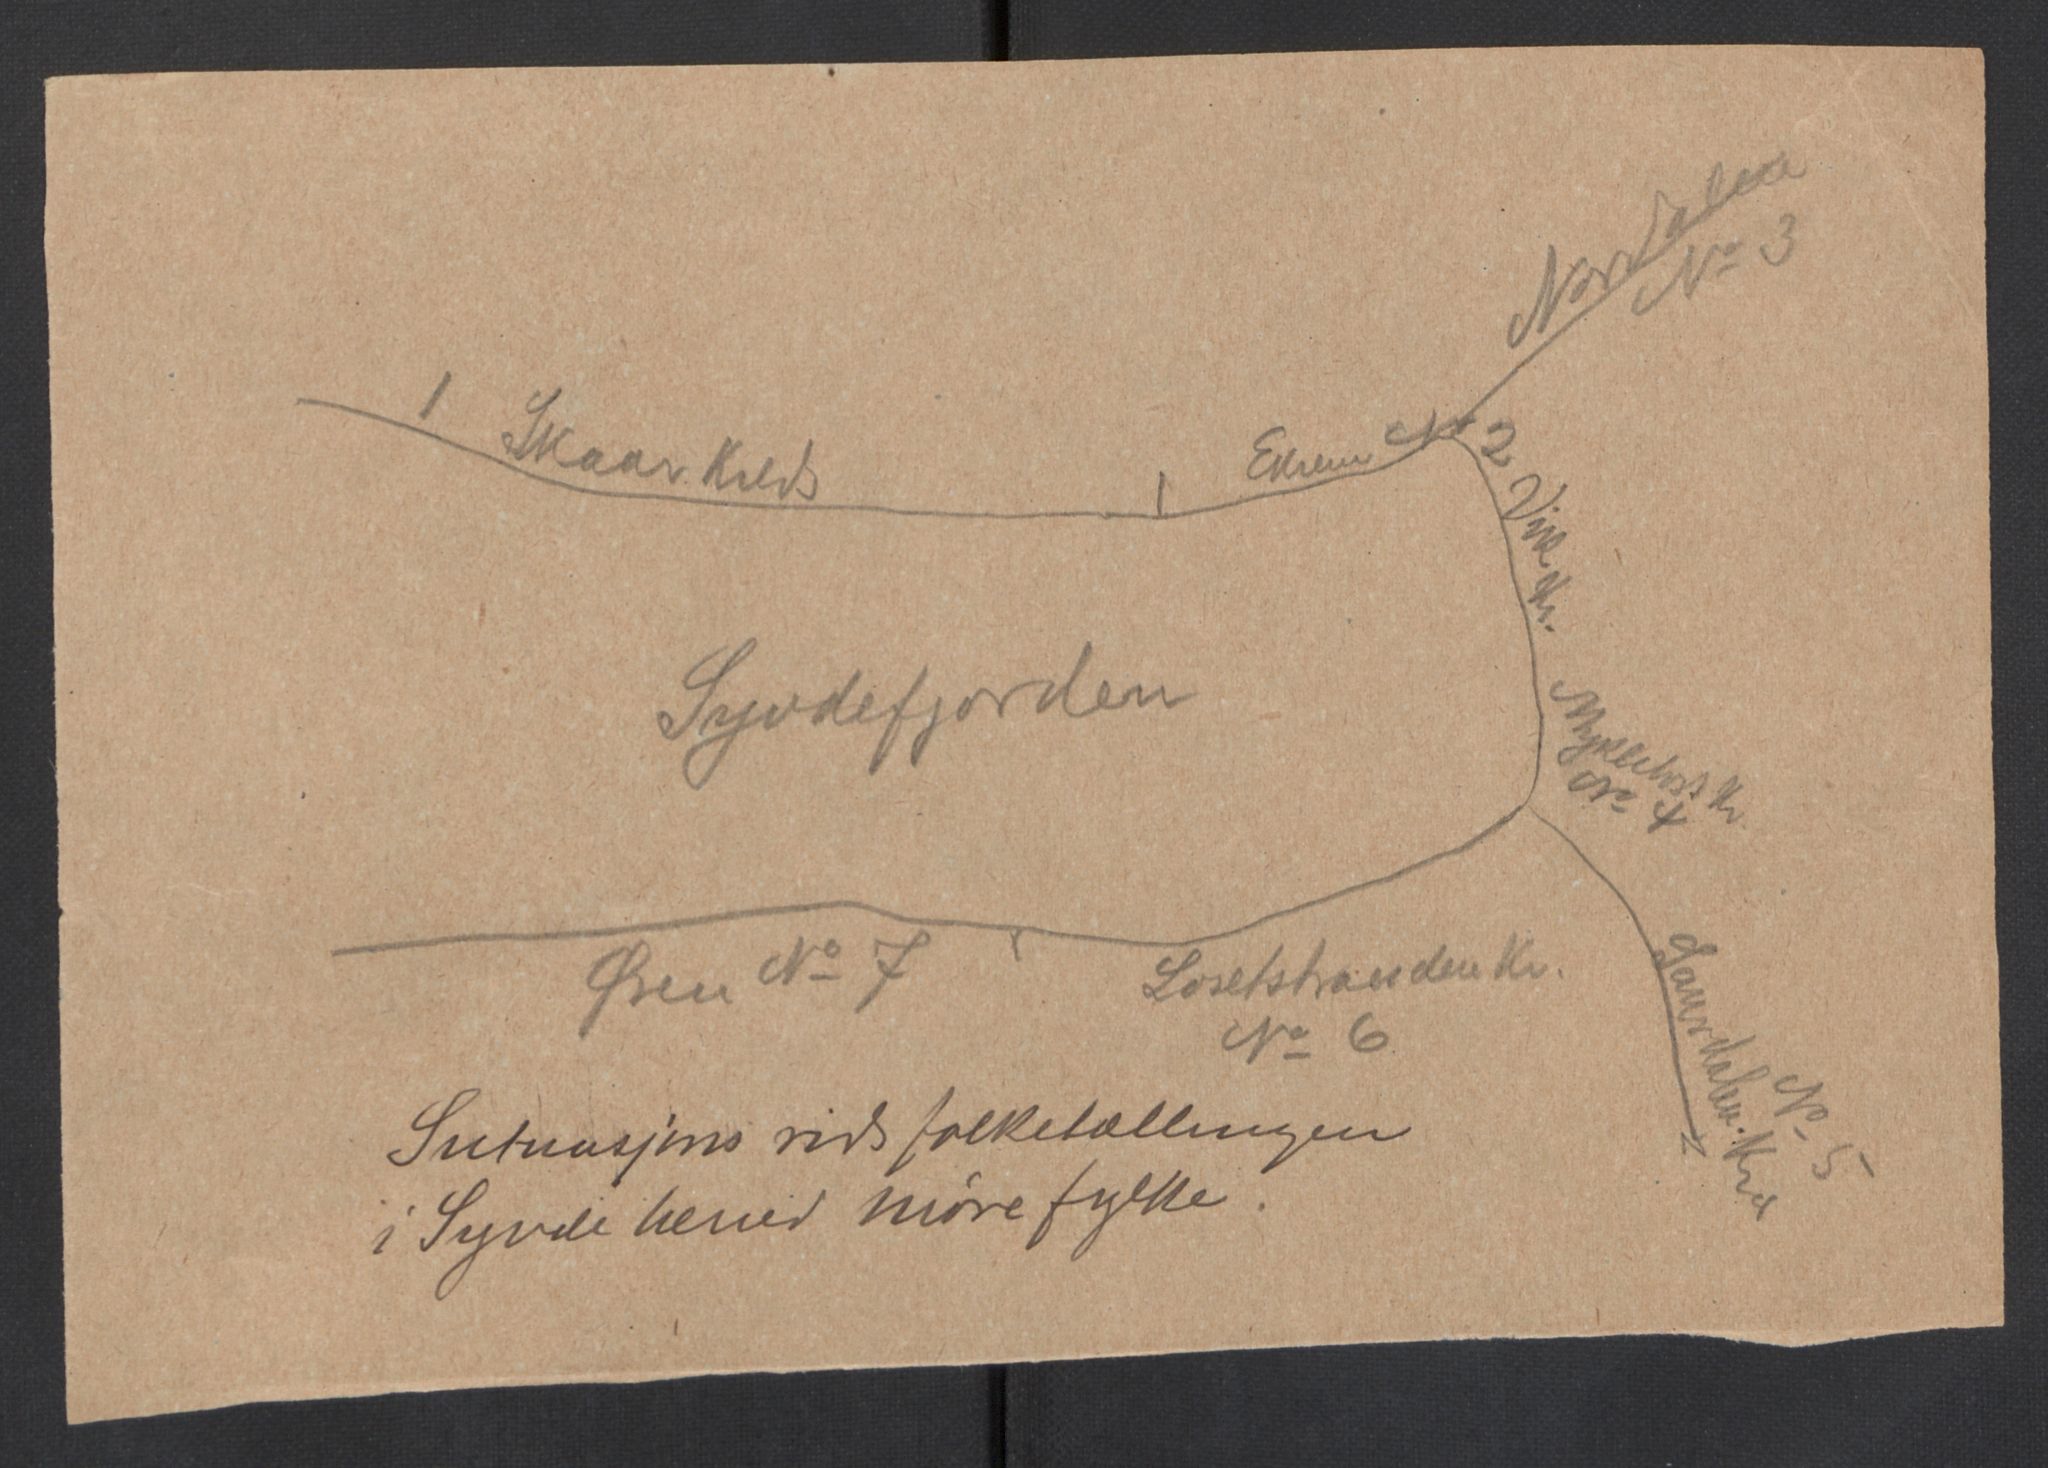 Nordalen
No 3
1 Skaar Kreds
Ekrem No 2 Vik Kr.
Syvdefjorden
Myklebost Kr
No 4
Øren No 7
Losetstranden Kr.
No 6
No 5
Situasjons rids folketællingen
i Syvde herred Møre fylke.